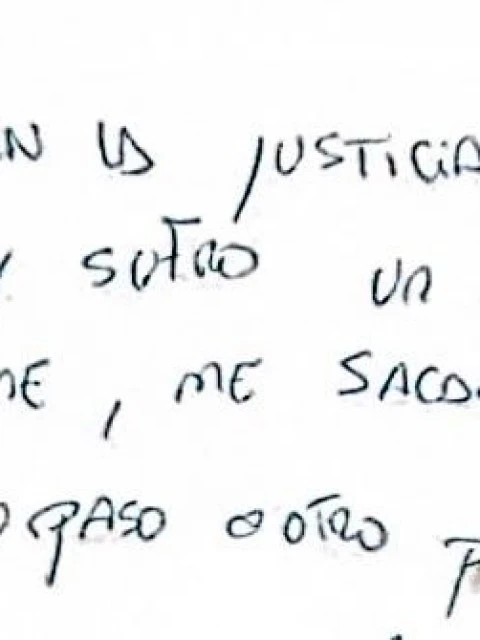 N LA JUSTICIA
Y SUFRO UN
ME, ME SACO
O PASO O OTRO P